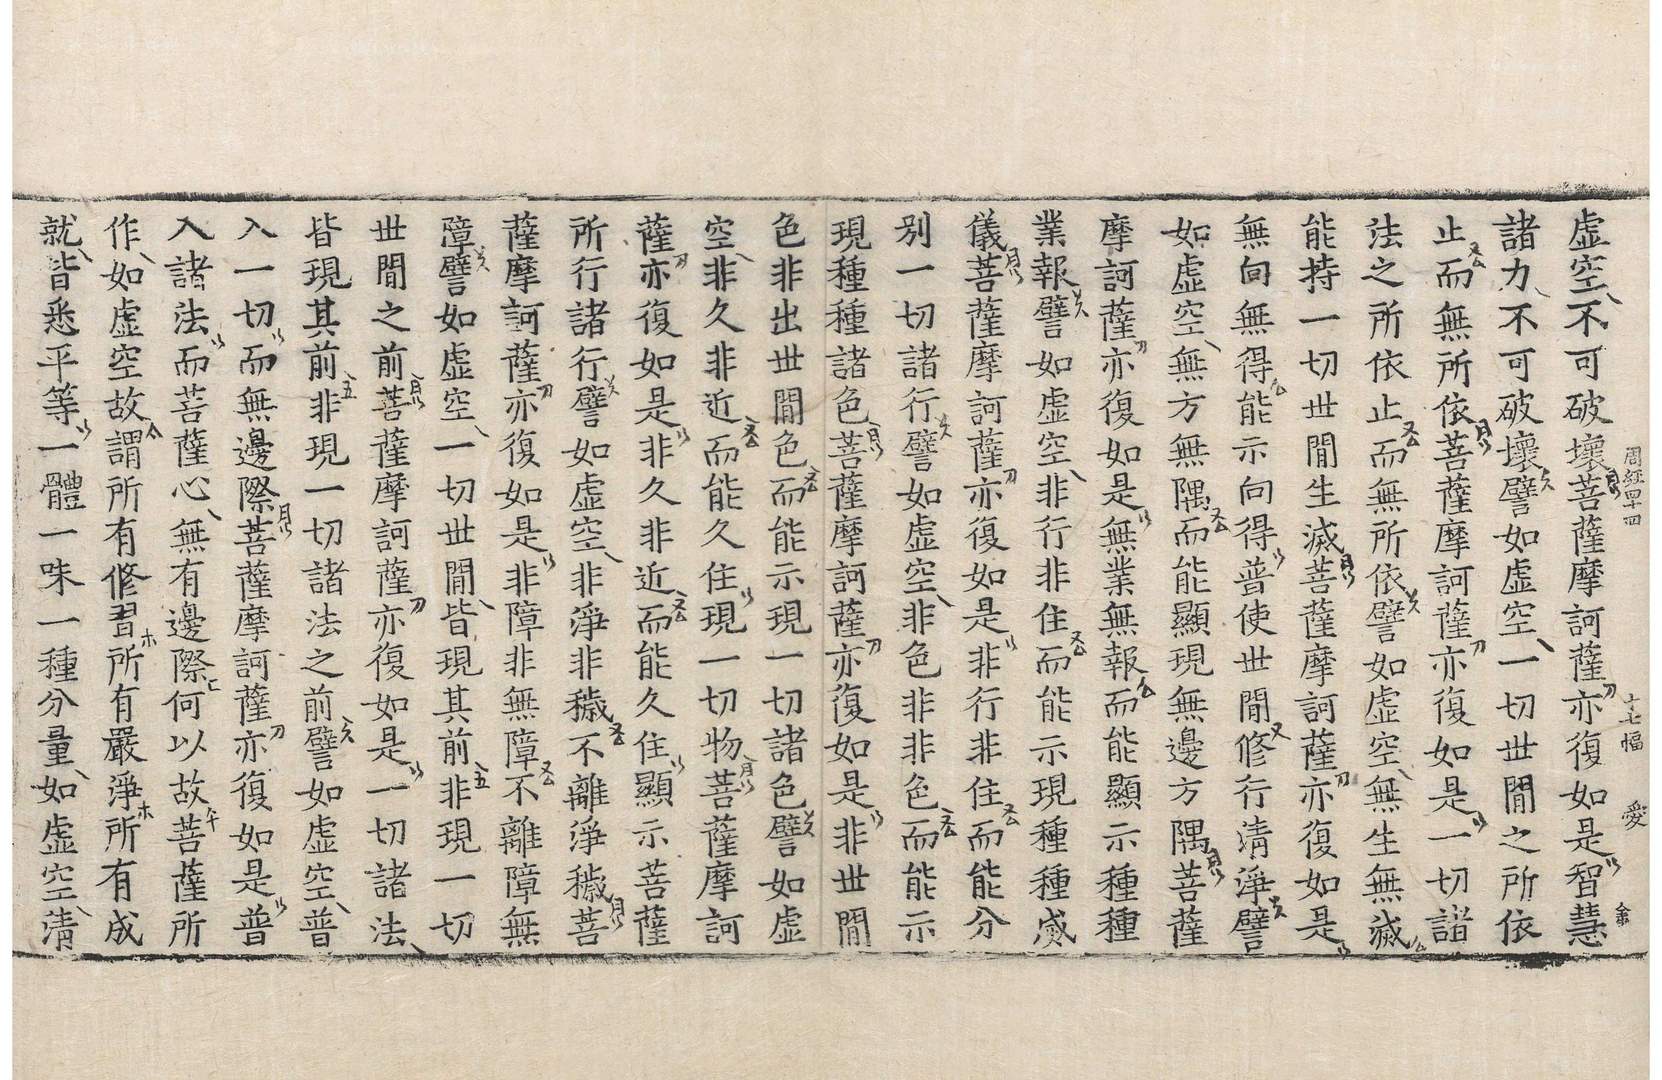 周經四十四 十七幅 愛
虛空不可破壞菩薩摩訶薩亦復如是智慧
諸力不可破壞譬如虛空一切世間之所依
止而無所依菩薩摩訶薩亦復如是一切諸
法之所依止而無所依譬如虛空無生無滅
能持一切世間生滅菩薩摩訶薩亦復如是
無向無得能示向得普使世間修行清淨譬
如虛空無方無隅而能顯現無邊方隅菩薩
摩訶薩亦復如是無業無報而能顯示種種
業報譬如虛空非行非住而能示現種種威
儀菩薩摩訶薩亦復如是非行非住而能分
別一切諸行譬如虛空非色非非色而能示
現種種諸色菩薩摩訶薩亦復如是非世間
色非出世間色而能示現一切諸色譬如虛
空非久非近而能久住現一切物菩薩摩訶
薩亦復如是非久非近而能久住顯示菩薩
所行諸行譬如虛空非淨非穢不離淨穢菩
薩摩訶薩亦復如是非障非無障不離障無
障譬如虛空一切世間皆現其前非現一切
世間之前菩薩摩訶薩亦復如是一切諸法
皆現其前非現一切諸法之前譬如虛空普
入一切而無邊際菩薩摩訶薩亦復如是普
入諸法而菩薩心無有邊際何以故菩薩所
作如虛空故謂所有修習所有嚴淨所有成
就皆悉平等一體一味一種分量如虛空清